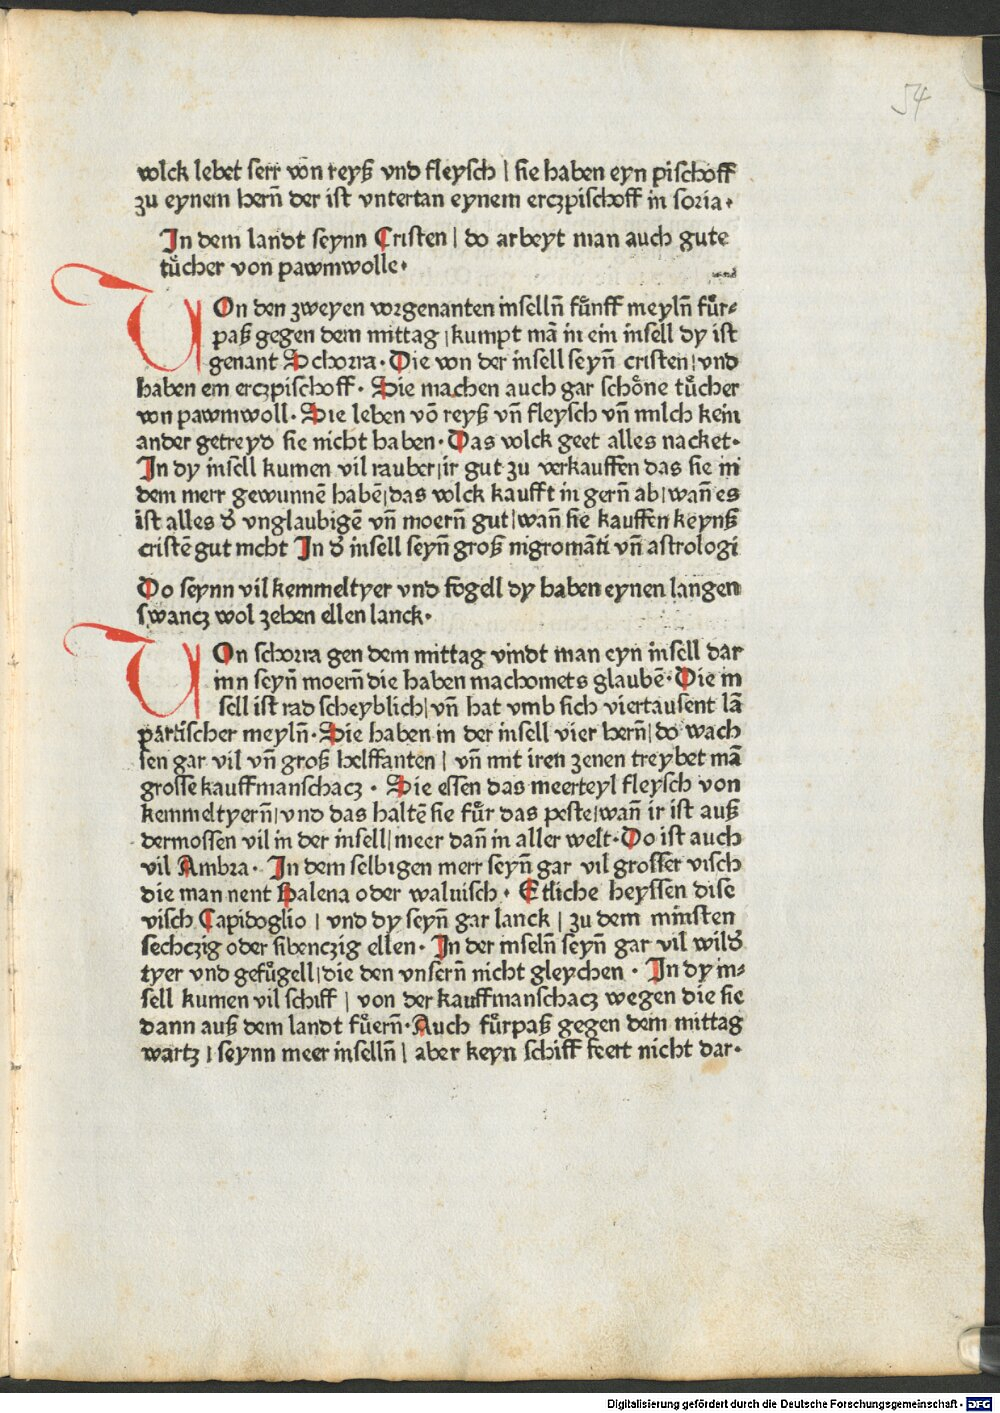 54
volck lebet serr von reyß vnd fleysch | sie haben eyn pischoff
zu eynem hern̄ der ist vntertan eynem erczpischoff in soria·
In dem landt seynn Cristen | do arbeyt man auch gute
tücher von pawmwolle·
VOn den zweyen vorgenanten inselln̄ fünff meyln̄ für-
paß gegen dem mittag | kumpt mā in ein insell dy ist
genant Schorra· Die von der insell seyn̄ cristen | vnd
haben ein erczpischoff· Sie machen auch gar schöne tücher
von pawmwoll· Sie leben vō reyß vn̄ fleysch vn̄ milch kein
ander getreyd sie nicht haben· Das volck geet alles nacket·
In dy insell kumen vil rauber | ir gut zu verkauffen das sie in
dem merr gewunnē habē | das volck kaufft in gern̄ ab | wan̄ es
ist alles d̕ vnglaubigē vn̄ moern̄ gut | wan̄ sie kauffen keynß
cristē gut nicht In d̕ insell seyn̄ groß nigromāti vn̄ astrologi
Do seynn vil kemmeltyer vnd fogell dy haben eynen langen
swancz wol zehen ellen lanck·
VOn schorra gen dem mittag vindt man eyn insell dar
inn seyn̄ moern̄ die haben machomets glaubē· Die in
sell ist rad scheyblich | vn̄ hat vmb sich viertausent lā
partischer meyln̄· Sie haben in der insell vier hern̄ | do wach
sen gar vil vn̄ groß helffanten | vn̄ mit iren zenen treybet mā
grosse kauffmanschacz · Sie essen das meerteyl fleysch von
kemmeltyern̄ | vnd das haltē sie für das peste | wan̄ ir ist auß
dermossen vil in der insell | meer dan̄ in aller welt· Do ist auch
vil Ambra· In dem selbigen merr seyn̄ gar vil grosser visch
die man nent Balena oder walvisch · Etliche heyssen dise
visch Capidoglio | vnd dy seyn̄ gar lanck | zu dem minsten
sechczig oder sibenczig ellen· In der inseln̄ seyn̄ gar vil wild̕
tyer vnd gefügell | die den vnsern̄ nicht gleychen · In dy in-
sell kumen vil schiff | von der kauffmanschacz wegen die sie
dann auß dem landt füern̄· Auch fürpaß gegen dem mittag
wartz | seynn meer inselln̄ | aber keyn schiff feert nicht dar·
Digitalisierung gefördert durch die Deutsche Forschungsgemeinschaft - DFG